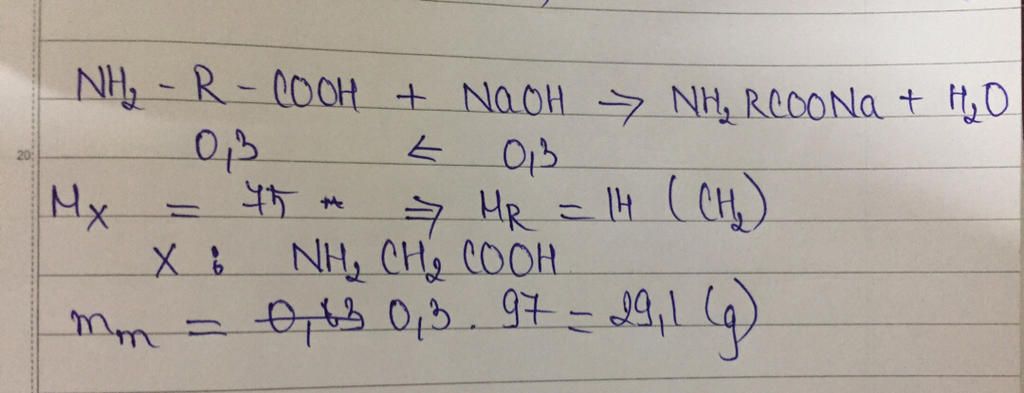 NH₂ - R - COOH + NaOH → NH₂RCOONa + H₂O
20
0,3 ← 0,3
Mx = 75 ⇒ MR = 14 (CH₂)
X : NH₂CH₂COOH
mm = 0,3 . 97 = 29,1 (g)